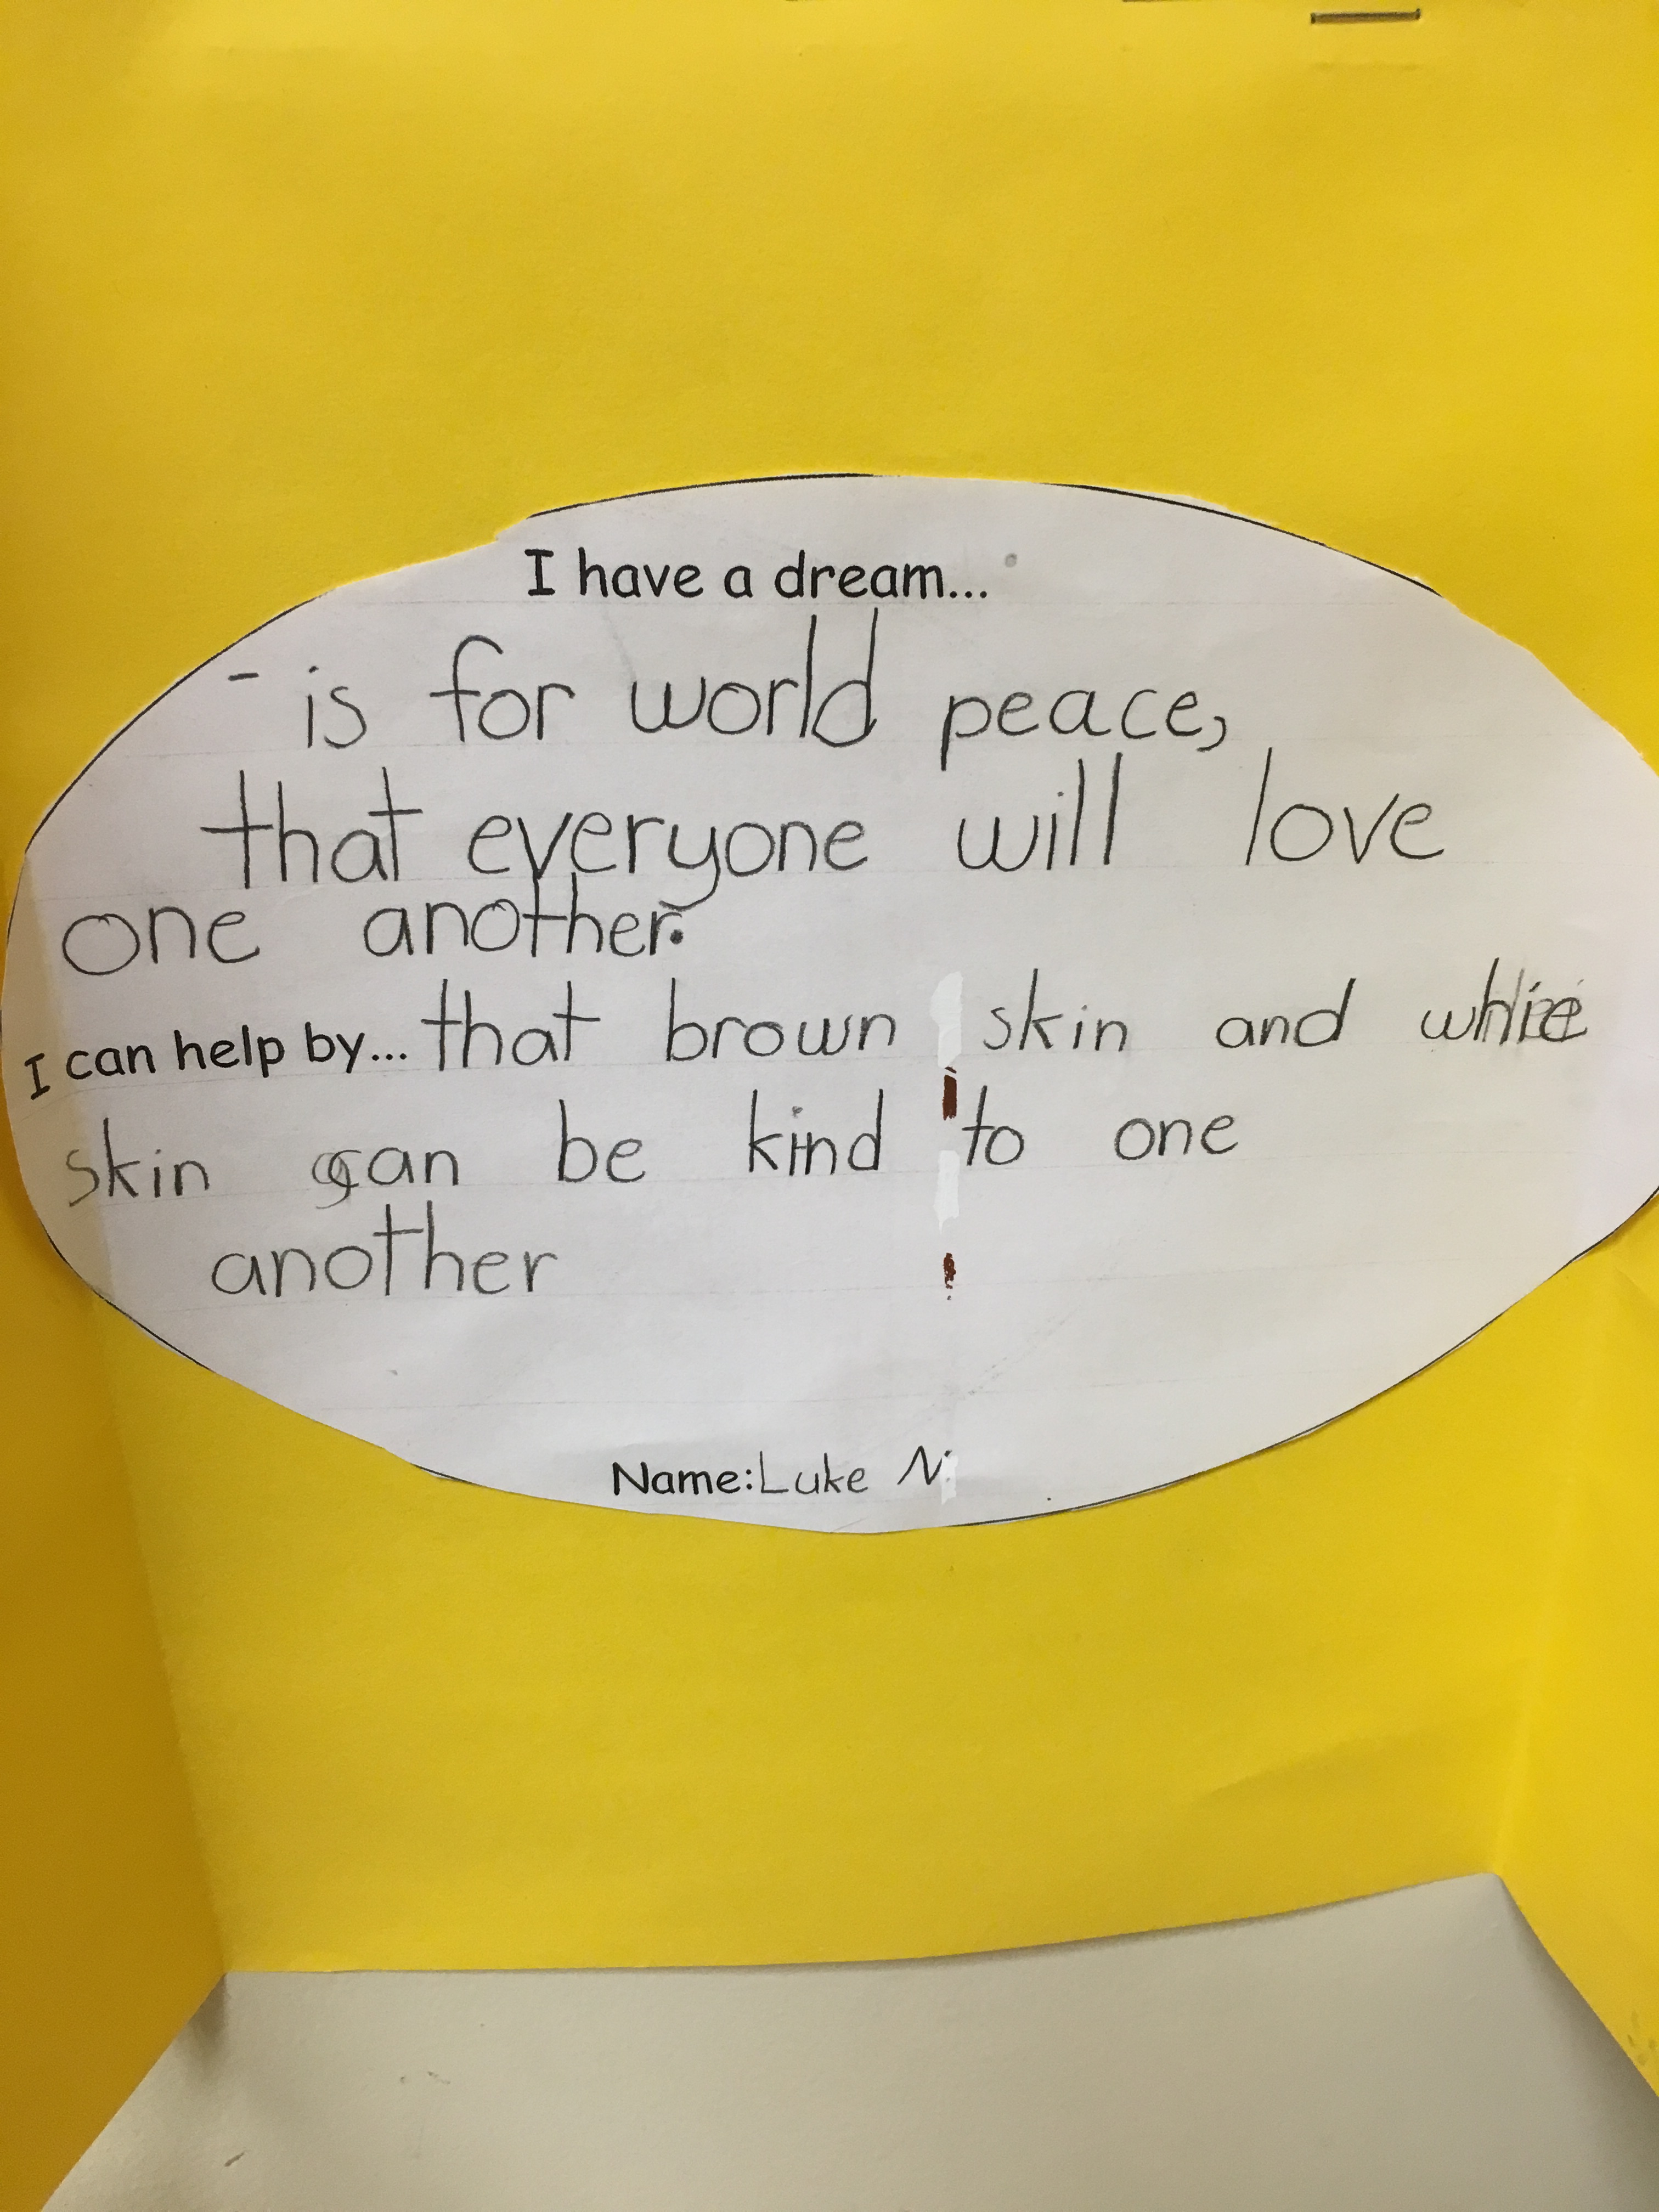 I have a dream...
- is for world peace,
that everyone will love
one another.
I can help by... that brown skin and white
skin can be kind to one
another
Name: Luke N.